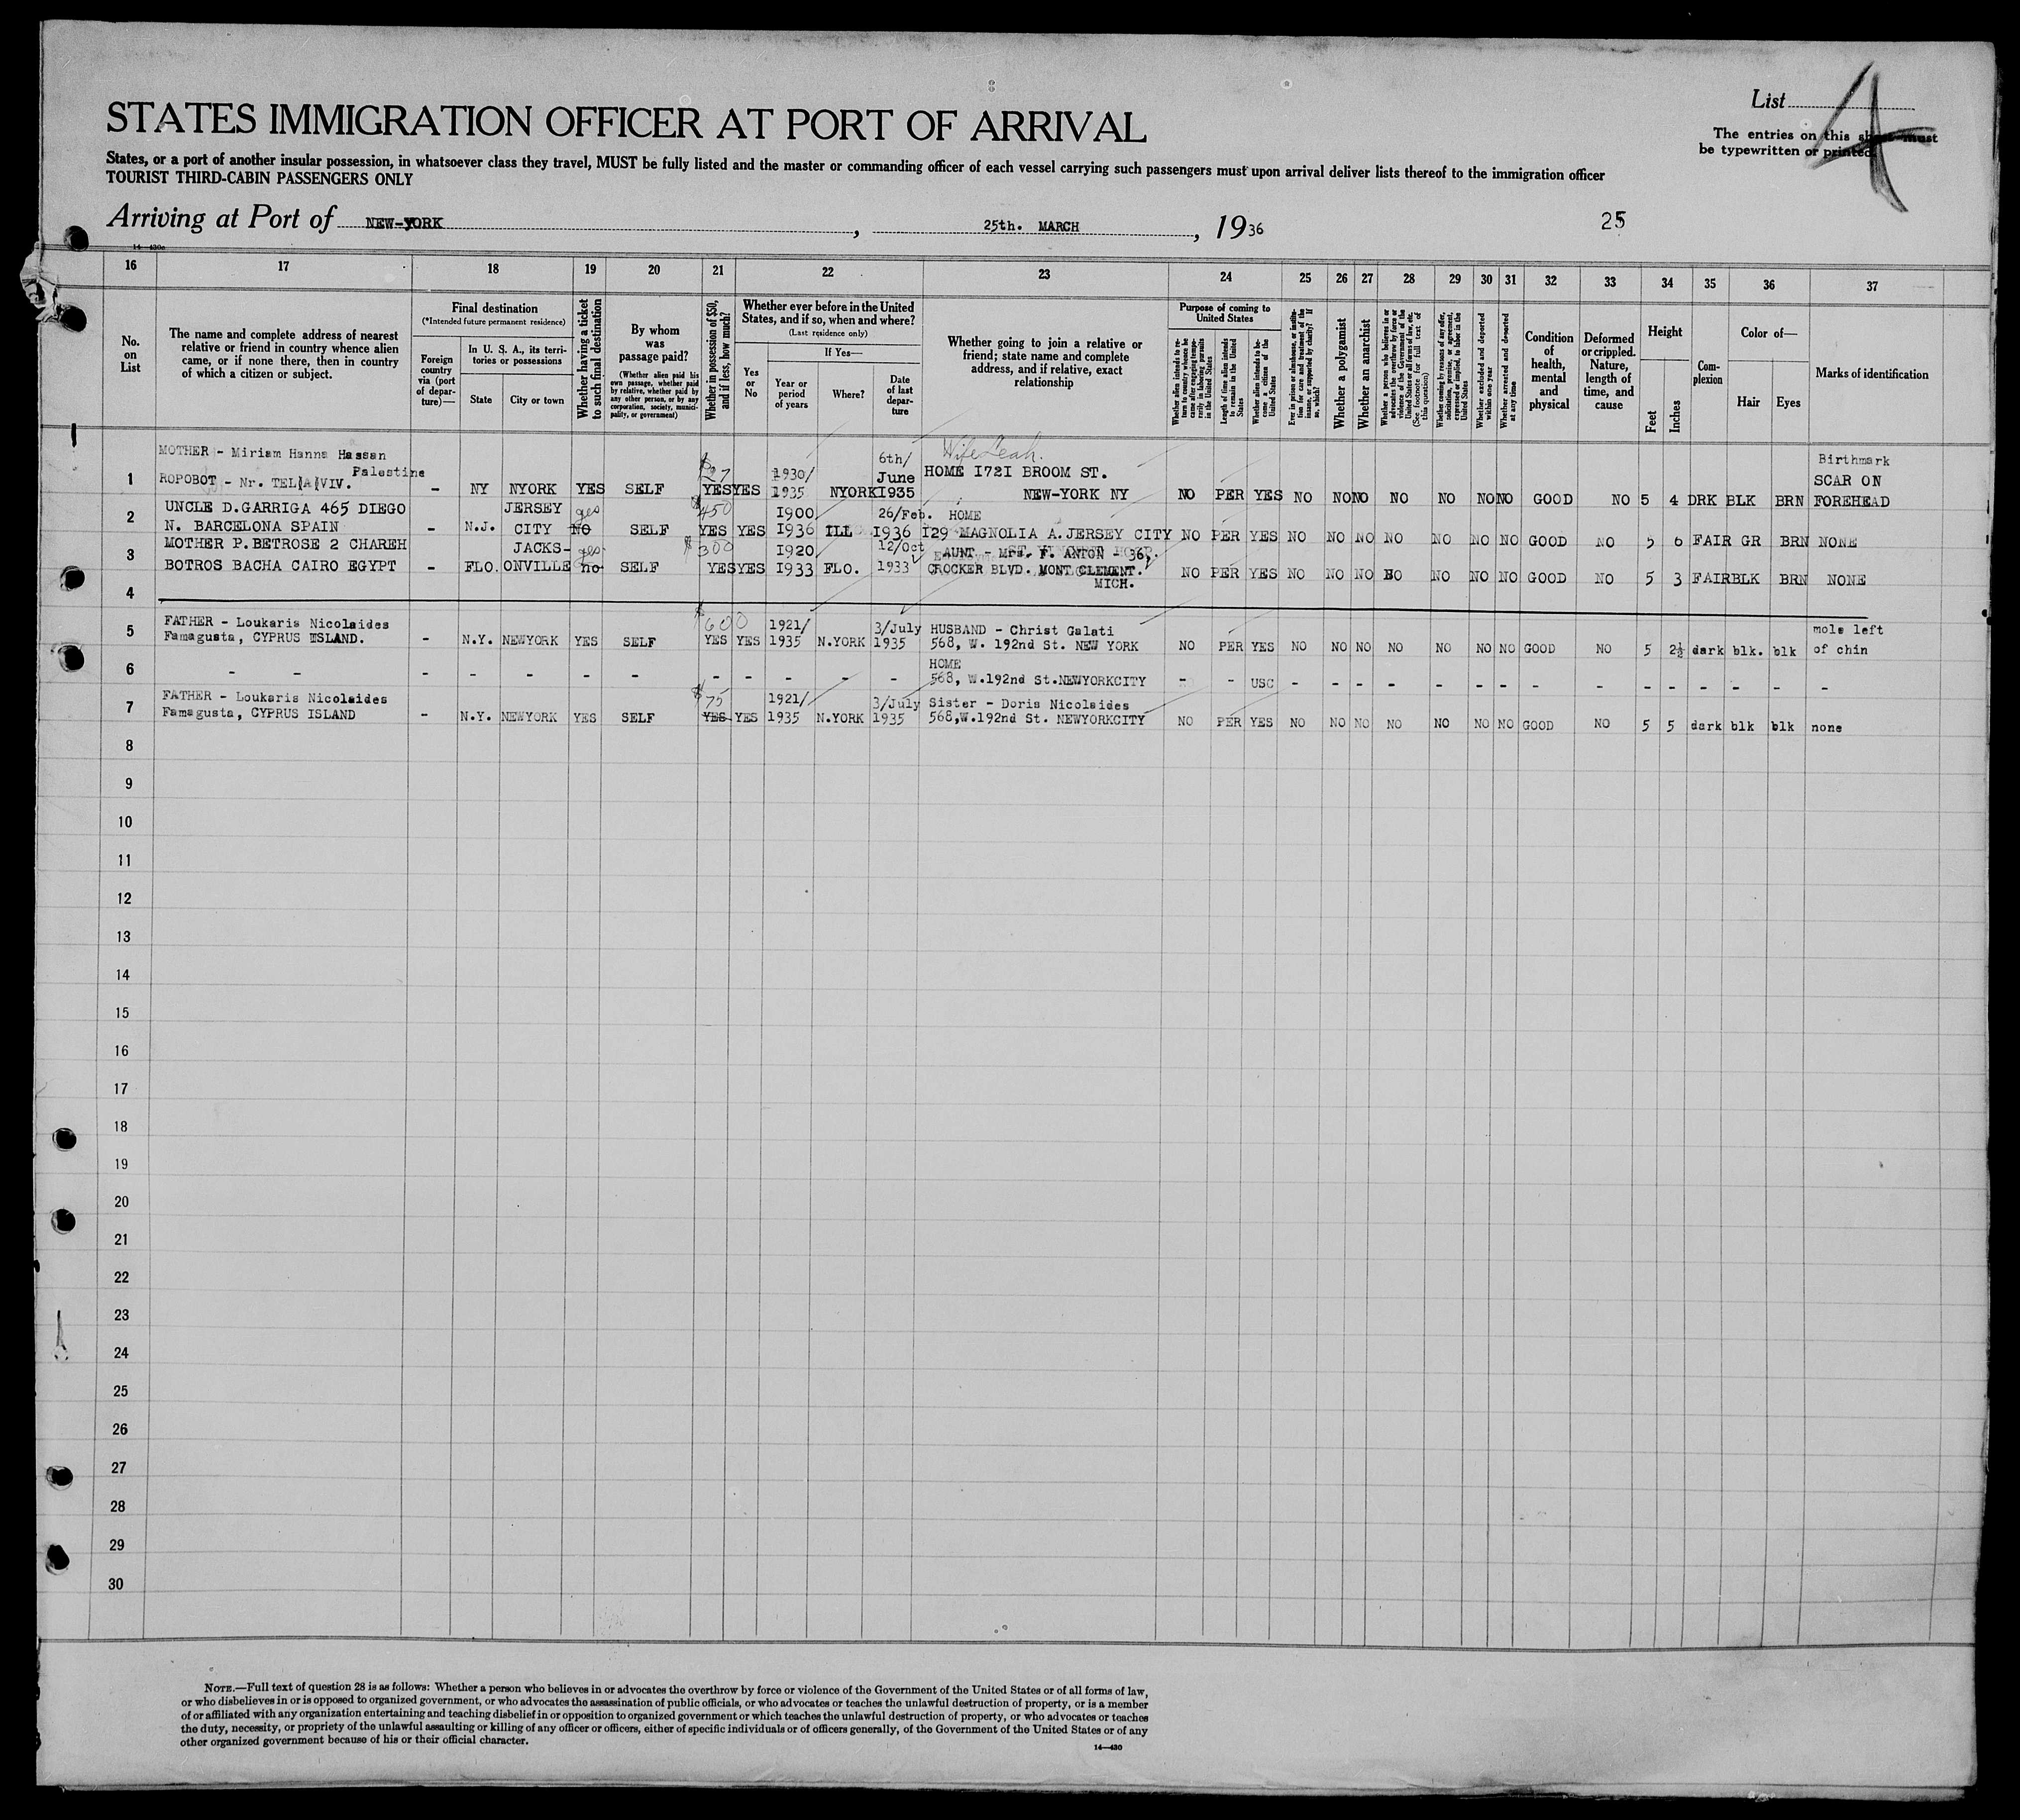 List 4
STATES IMMIGRATION OFFICER AT PORT OF ARRIVAL
The entries on this sheet must
be typewritten or printed.
States, or a port of another insular possession, in whatsoever class they travel, MUST be fully listed and the master or commanding officer of each vessel carrying such passengers must upon arrival deliver lists thereof to the immigration officer
TOURIST THIRD-CABIN PASSENGERS ONLY
Arriving at Port of NEW-YORK, 25th. MARCH, 1936
25
14—430c
16 17 18 19 20 21 22 23 24 25 26 27 28 29 30 31 32 33 34 35 36 37
No. on List
The name and complete address of nearest
relative or friend in country whence alien
came, or if none there, then in country
of which a citizen or subject.
Final destination
(*Intended future permanent residence)
Foreign country via (port of departure)—
In U. S. A., its territories or possessions
State
City or town
Whether having a ticket to such final destination
By whom was passage paid?
(Whether alien paid his own passage, whether paid by relative, whether paid by any other person, or by any corporation, society, municipality, or government)
Whether in possession of $50, and if less, how much?
Whether ever before in the United
States, and if so, when and where?
(Last residence only)
Yes or No
If Yes—
Year or period of years
Where?
Date of last departure
Whether going to join a relative or
friend; state name and complete
address, and if relative, exact
relationship
Purpose of coming to United States
Whether alien intends to return to country whence he came after engaging temporarily in laboring pursuits in the United States
Length of time alien intends to remain in the United States
Whether alien intends to become a citizen of the United States
Ever in prison or almshouse, or institution for care and treatment of the insane, or supported by charity? If so, which?
Whether a polygamist
Whether an anarchist
Whether a person who believes in or advocates the overthrow by force or violence of the Government of the United States or all forms of law, etc. (See footnote for full text of this question)
Whether coming by reasons of any offer, solicitation, promise, or agreement, expressed or implied, to labor in the United States
Whether excluded and deported within one year
Whether arrested and deported at any time
Condition of health, mental and physical
Deformed or crippled. Nature, length of time, and cause
Height
Feet
Inches
Complexion
Color of—
Hair
Eyes
Marks of identification
MOTHER - Miriam Hanna Hassan $27 6th/ Wife Leah. Birthmark
Palestine 1930/ June HOME 1721 BROOM ST. SCAR ON
1 ROPOBOT - Nr. TEL A VIV. - NY NYORK YES SELF YES YES 1935 NYORK 1935 NEW-YORK NY NO PER YES NO NO NO NO NO NO NO GOOD NO 5 4 DRK BLK BRN FOREHEAD
2 UNCLE D.GARRIGA 465 DIEGO JERSEY yes $450 1900 26/Feb. HOME
N. BARCELONA SPAIN - N.J. CITY NO SELF YES YES 1936 ILL 1936 129 MAGNOLIA A.JERSEY CITY NO PER YES NO NO NO NO NO NO NO GOOD NO 5 6 FAIR GR BRN NONE
3 MOTHER P.BETROSE 2 CHAREH JACKS- yes $300 1920 12/Oct AUNT - MRS. F. ANTON - 36,
BOTROS BACHA CAIRO EGYPT - FLO. ONVILLE no SELF YES YES 1933 FLO. 1933 CROCKER BLVD. MONT CLEMENT. NO PER YES NO NO NO NO NO NO NO GOOD NO 5 3 FAIR BLK BRN NONE
MICH.
4
5 FATHER - Loukaris Nicolaides $600 1921/ 3/July HUSBAND - Christ Galati mole left
Famagusta, CYPRUS ISLAND. - N.Y. NEWYORK YES SELF YES YES 1935 N.YORK 1935 568, W. 192nd St. NEW YORK NO PER YES NO NO NO NO NO NO NO GOOD NO 5 2½ dark blk. blk of chin
6 HOME
- - - - - - - - - - - - - 568, W.192nd St.NEWYORKCITY - - USC - - - - - - - - - - - - - - -
7 FATHER - Loukaris Nicolaides $75 1921/ 3/July Sister - Doris Nicolaides
Famagusta, CYPRUS ISLAND - N.Y. NEWYORK YES SELF YES YES 1935 N.YORK 1935 568,W.192nd St. NEWYORKCITY NO PER YES NO NO NO NO NO NO NO GOOD NO 5 5 dark blk blk none
8
9
10
11
12
13
14
15
16
17
18
19
20
21
22
23
24
25
26
27
28
29
30
NOTE.—Full text of question 28 is as follows: Whether a person who believes in or advocates the overthrow by force or violence of the Government of the United States or of all forms of law,
or who disbelieves in or is opposed to organized government, or who advocates the assassination of public officials, or who advocates or teaches the unlawful destruction of property, or is a member
of or affiliated with any organization entertaining and teaching disbelief in or opposition to organized government or which teaches the unlawful destruction of property, or who advocates or teaches
the duty, necessity, or propriety of the unlawful assaulting or killing of any officer or officers, either of specific individuals or of officers generally, of the Government of the United States or of any
other organized government because of his or their official character.
14—430